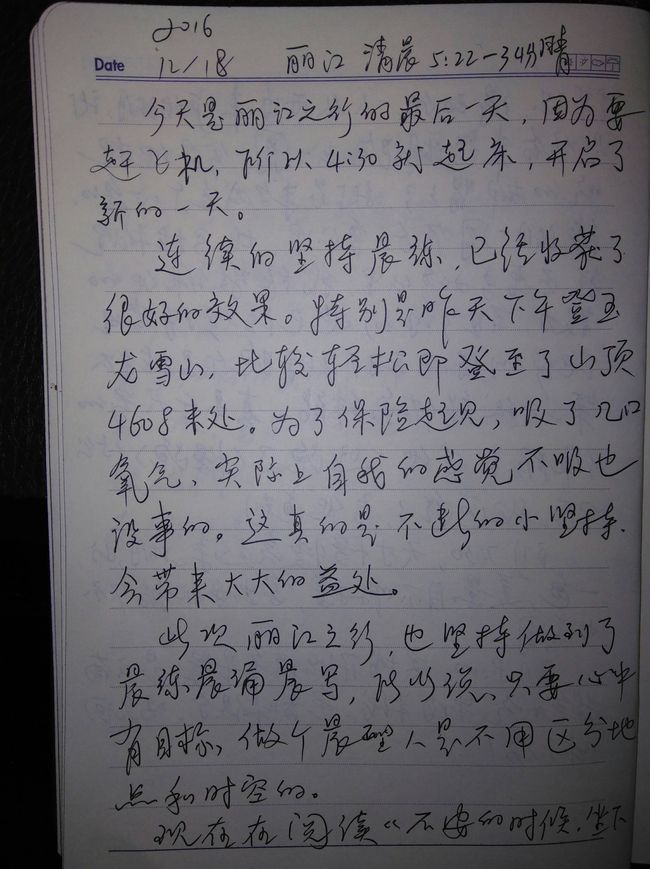 2016
Date 12/18 丽江 清晨 5:22-34分 晴
今天是丽江之行的最后一天，因为要
赶飞机，所以4:30就起床，开启了
新的一天。
连续的坚持晨练，已经收获了
很好的效果。特别是昨天下午登玉
龙雪山，比较轻松即登至了山顶
4608米处。为了保险起见，吸了几口
氧气，实际上自我的感觉不吸也
没事的。这真的是不断的小坚持，
会带来大大的益处。
此次丽江之行，也坚持做到了
晨练晨诵晨写，所以说，只要心中
有目标，做个晨型人是不用区分地
点和时空的。
现在在阅读《不安的时候，坐下